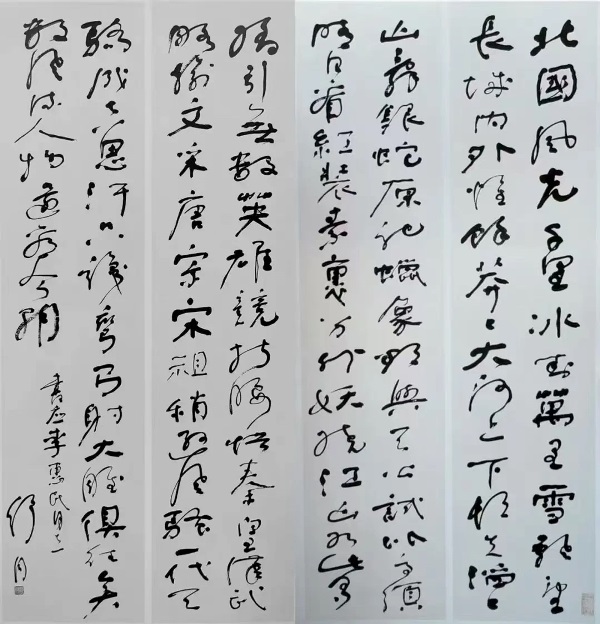 北國風光千里冰封萬里雪飄望
長城內外惟餘莽々大河上下頓失滔々
山舞銀蛇原馳蠟象欲與天公試比高須
晴日看紅裝素裹分外妖嬈江山如此多
嬌引無數英雄競折腰惜秦皇漢武
略輸文采唐宗宋祖稍遜風騷一代天
驕成吉思汗只識彎弓射大雕俱往矣
數風流人物還看今朝
書應李惠民同志
舒同